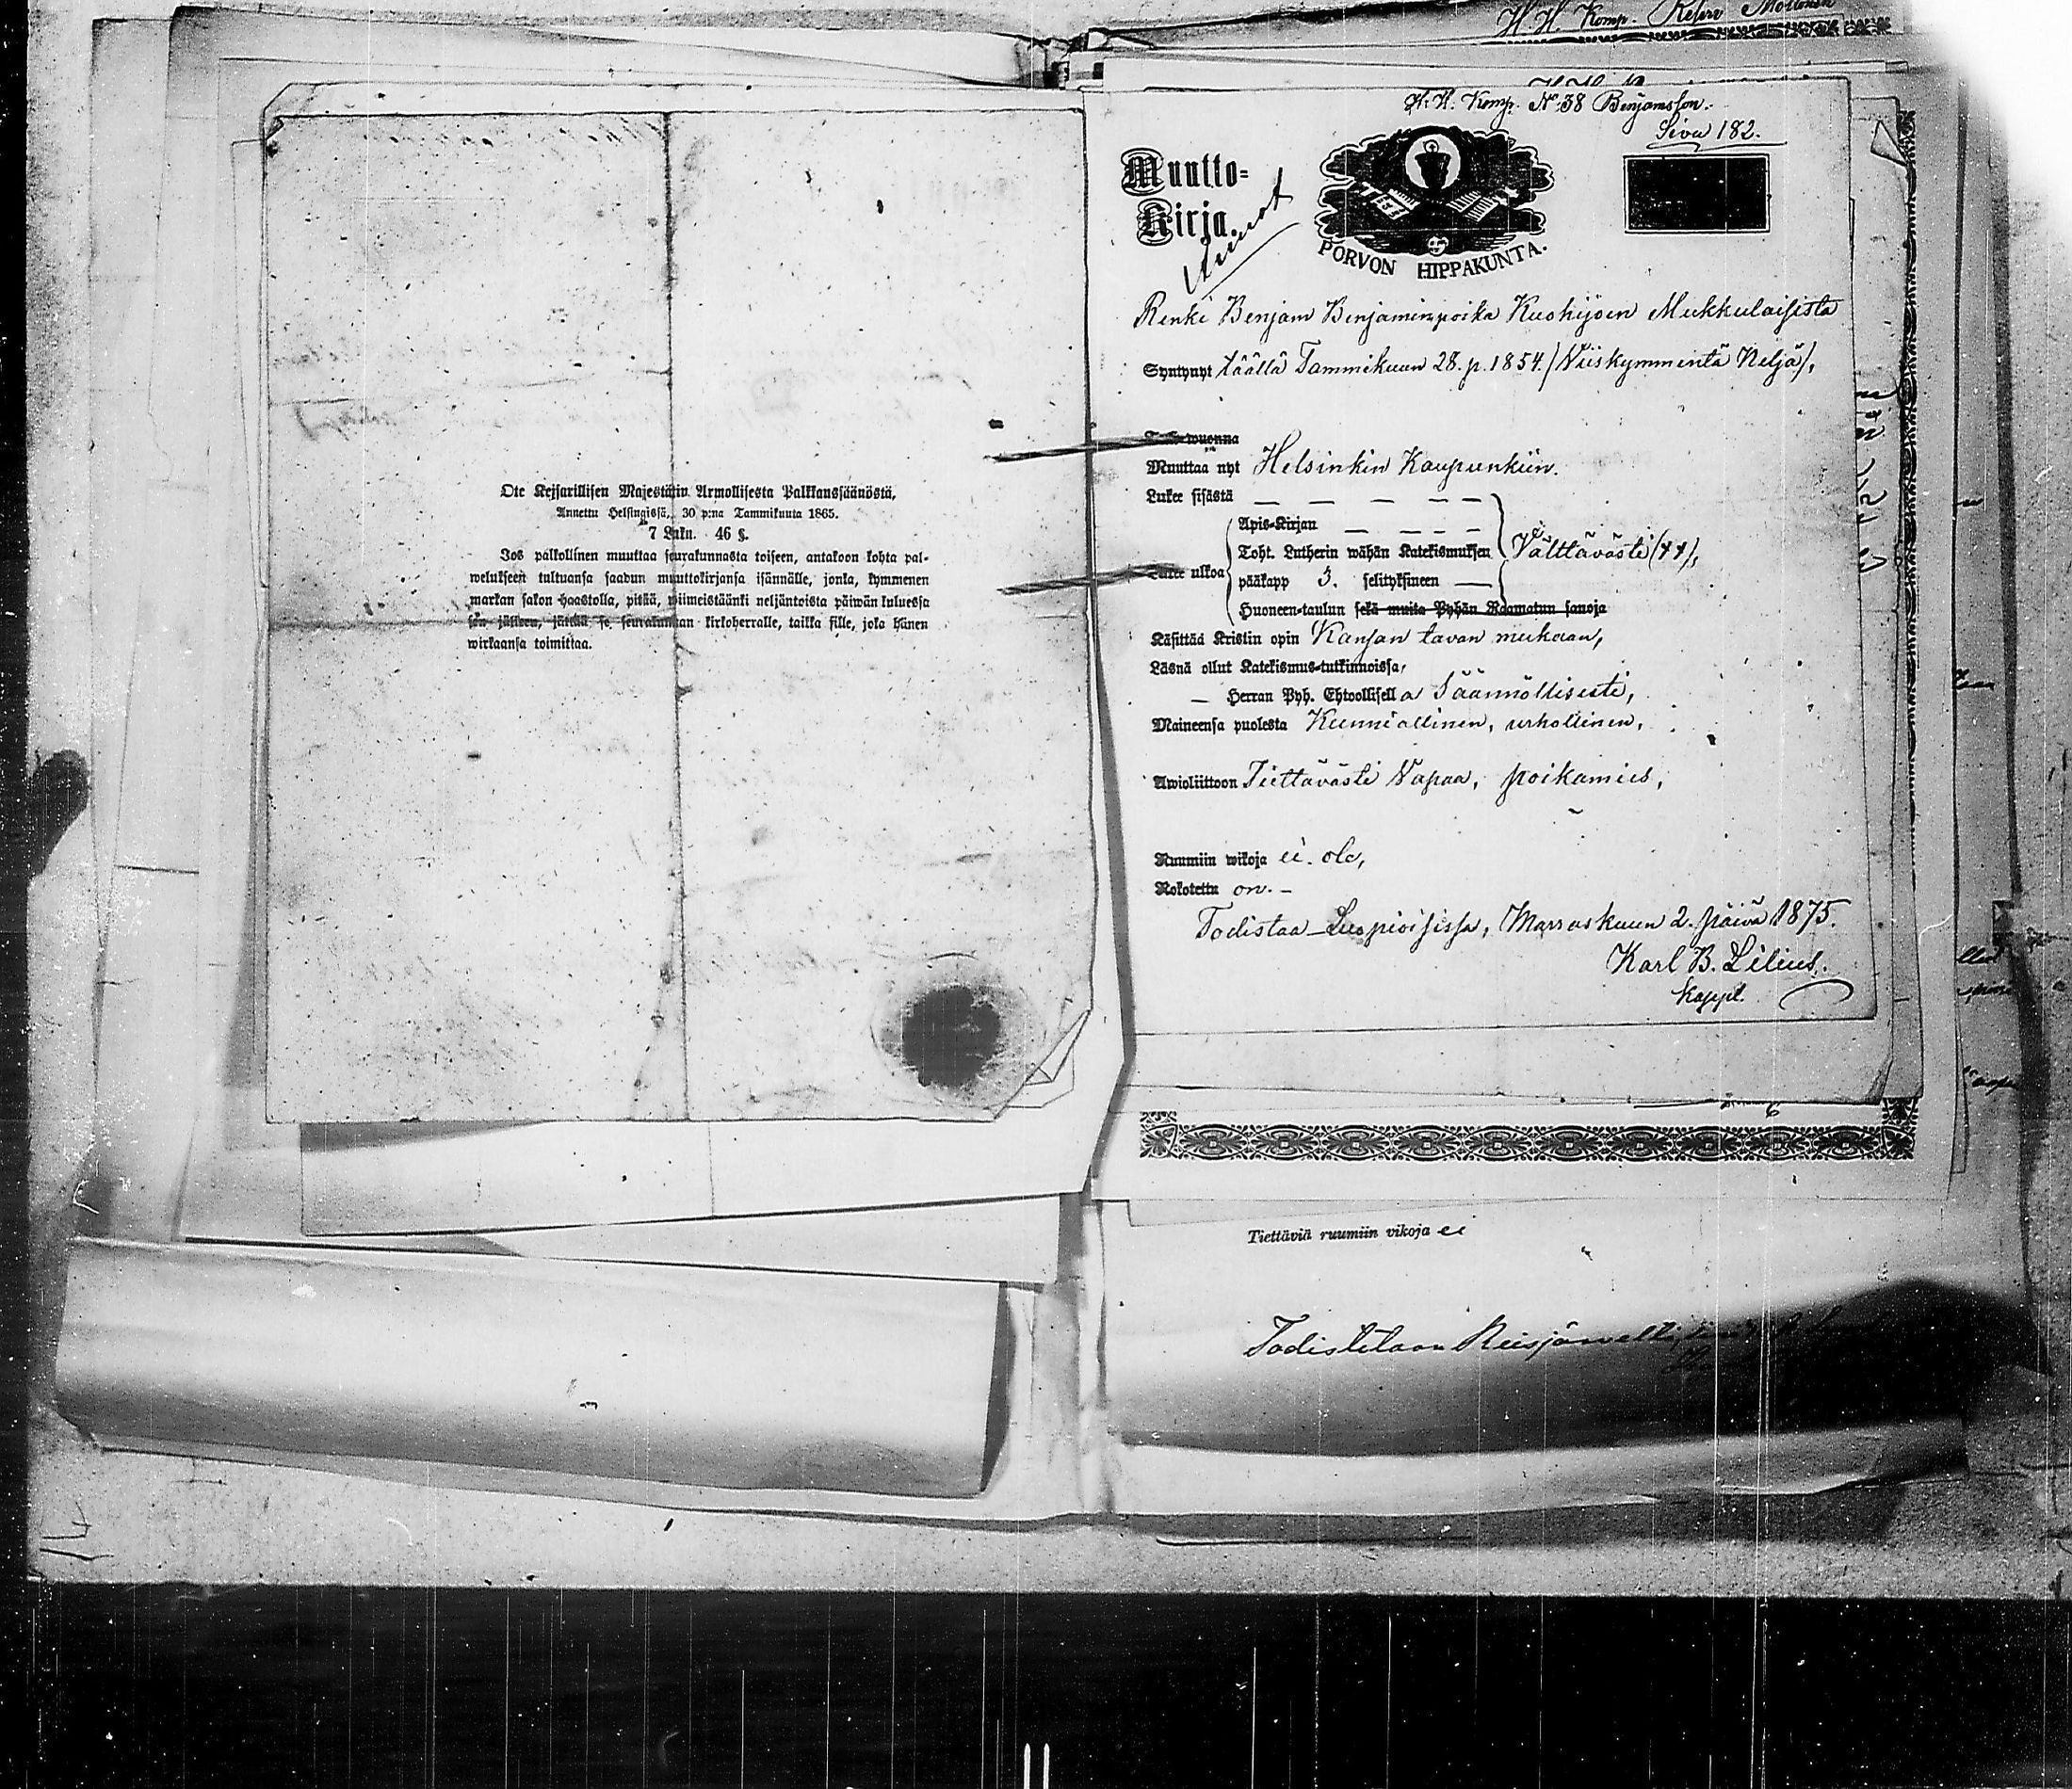 H. H. Komp. Refere Mollonen
Ote Keisarillisen Majestätin Armollisesta Palkkaussäännöstä,
Annettu Helsingissä, 30 p:nä Tammikuuta 1865.
7 Luku. 46 §.
Jos palkollinen muuttaa seurakunnasta toiseen, antakoon kohta pal-
welukseen tultuansa saadun muuttokirjansa isännälle, jonka, kymmenen
markan sakon haastolla, pitää, wiimeistäänki neljäntoista päiwän kuluessa
sen jälkeen, jättää se seurakunnan kirkoherralle, taikka sille, joka hänen
wirkaansa toimittaa.
H. H. Komp. No 38 Benjamsson.
Sivu 182.
Muutto=
Kirja.
PORVON HIPPAKUNTA.
Renki Benjam Benjaminpoika Kuohijoen Mukkulaisista
Syntynyt täällä Tammikuun 28. p. 1854. (Viiskymmentä Neljä),
wuonna
Muuttaa nyt Helsinkin Kaupunkiin.
Lukee sisästä — — — — —
Apis-Kirjan — — — —
Toht. Lutherin wähän Katekismuksen Välttävästi (++),
Lukee ulkoa
pääkapp 5. selityksineen —
Huoneen-taulun sekä muita Pyhän Raamatun sanoja
Käsittää Kristin opin Kansan tavan mukaan,
Läsnä ollut Katekismus-tutkinnoissa,
— Herran Pyh. Ehtoollisella Säännöllisesti,
Maineensa puolesta Kunniallinen, urhollinen,
Awioliittoon Tiettävästi Vapaa, poikamies,
Ruumiin wikoja ei. ole,
Rokotettu on. —
Todistaa Luopioisissa, Marraskuun 2. päivä 1875.
Karl B. Lilius.
Kappl.
6
Tiettäviä ruumiin vikoja ei
Todistetaan Reisjärvellä